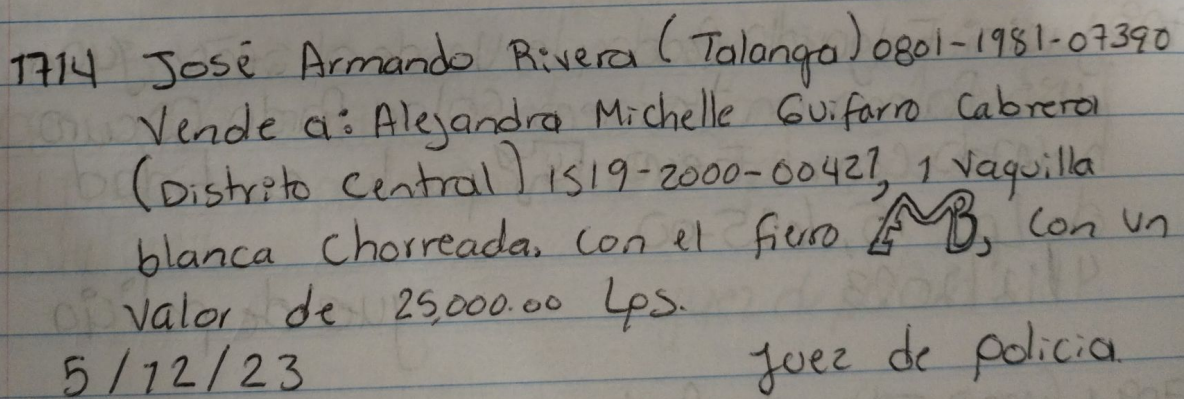 1714 José Armando Rivera (Talanga) 0801-1981-07390
Vende a: Alejandra Michelle Guifarro Cabrera
(Distrito Central) 1519-2000-00427, 1 Vaquilla
blanca Chorreada, con el fierro , con un
valor de 25,000.00 Lps.
5/12/23 Juez de policia.